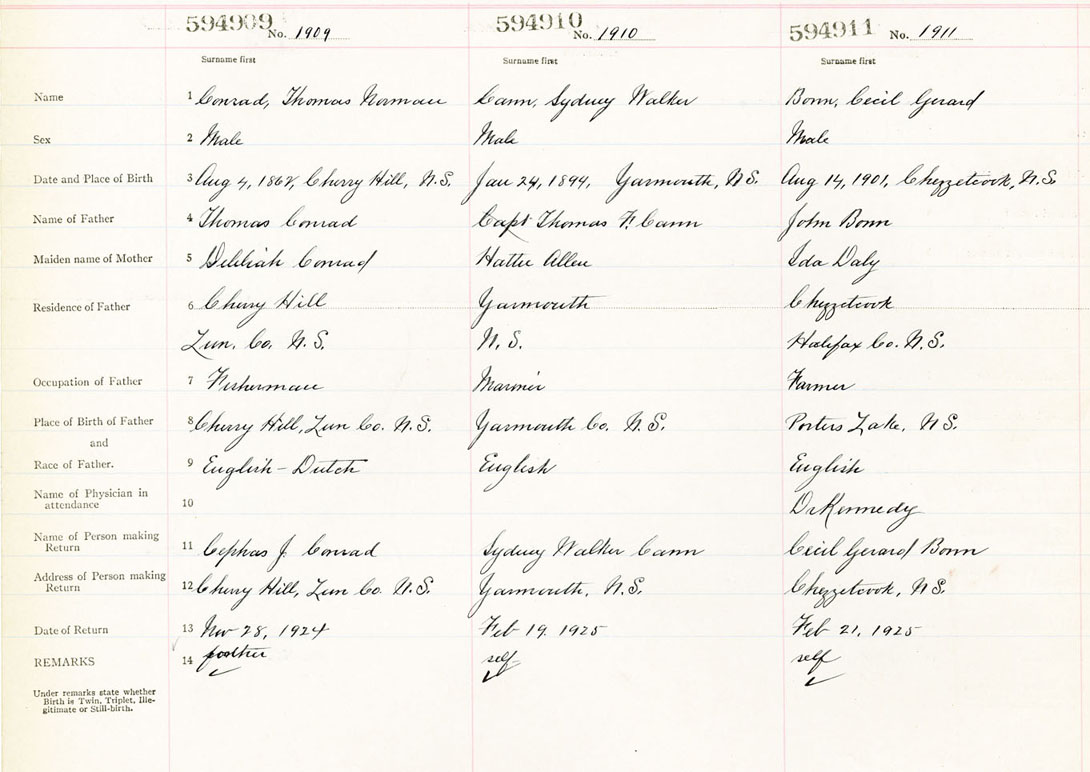 594909 No. 1909 594910 No. 1910 594911 No. 1911
Surname first Surname first Surname first
Name 1 Conrad, Thomas Norman Cann, Sydney Walker Bonn, Cecil Gerard
Sex 2 Male Male Male
Date and Place of Birth 3 Aug 4, Cherry Hill, N.S. Jan 24, 1894, Yarmouth, N.S. Aug 14, 1901, Chezzetcook, N.S.
Name of Father 4 Thomas Conrad Capt Thomas F. Cann John Bonn
Maiden name of Mother 5 Deliliah Conrad Hattie Allen Ida Daly
Residence of Father 6 Cherry Hill Yarmouth Chezzetcook
Lun. Co. N.S. N.S. Halifax Co. N.S.
Occupation of Father 7 Fisherman Marinir Farmer
Place of Birth of Father 8 Cherry Hill, Lun Co. N.S. Yarmouth Co. N.S. Porters Lake, N S.
and
Race of Father. 9 English - Dutch English English
Name of Physician in
attendance 10 Dr Kennedy
Name of Person making
Return 11 Cephas J. Conrad Sydney Walker Cann Cecil Gerard Bonn
Address of Person making
Return 12 Cherry Hill, Lun Co. N.S. Yarmouth, N.S. Chezzetcook, N S.
Date of Return 13 Nov 28, 1924 Feb 19, 1925 Feb 21, 1925
REMARKS 14 self self
Under remarks state whether
Birth is Twin, Triplet, Ille-
gitimate or Still-birth.